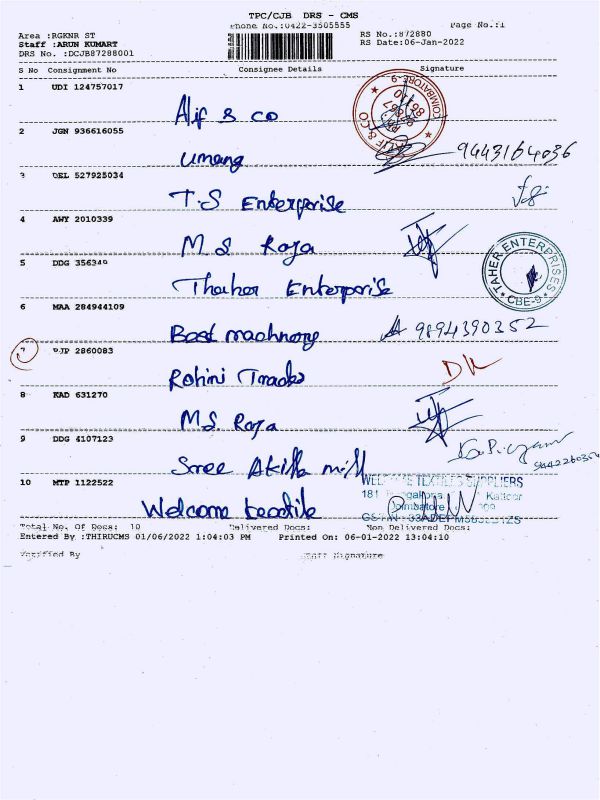 TPC/CJB DRS - CMS
Phone No.:0422-3505555
Page No.:1
Area :RGKNR ST
RS No.:872880
Staff :ARUN KUMART
RS Date:06-Jan-2022
DRS No. :DCJB87288001
S No Consignment No Consignee Details Signature
1 UDI 124757017
Alif & co
ALIF & CO COIMBATORE-9
2 JGN 936616055
umang 9443164036
3 DEL 527925034
T.S Enterprise
4 AWY 2010339
M.S Raja
5 DDG 356349
Thaher Enterprise
TAHER ENTERPRISES CBE-9
6 MAA 284944109
Best machnory 9894390352
7 PJP 2860083
Rohini Trades
8 KAD 631270
MS Raja
9 DDG 4107123
Sree Akilla mill
10 MTP 1122522
WELCOME TEXTILES SUPPLIERS
181 Kattoor
Welcome textile
Coimbatore
Total No. Of Docs: 10 Delivered Docs: Non Delivered Docs:
Entered By :THIRUCMS 01/06/2022 1:04:03 PM Printed On: 06-01-2022 13:04:10
Verified By Staff Signature